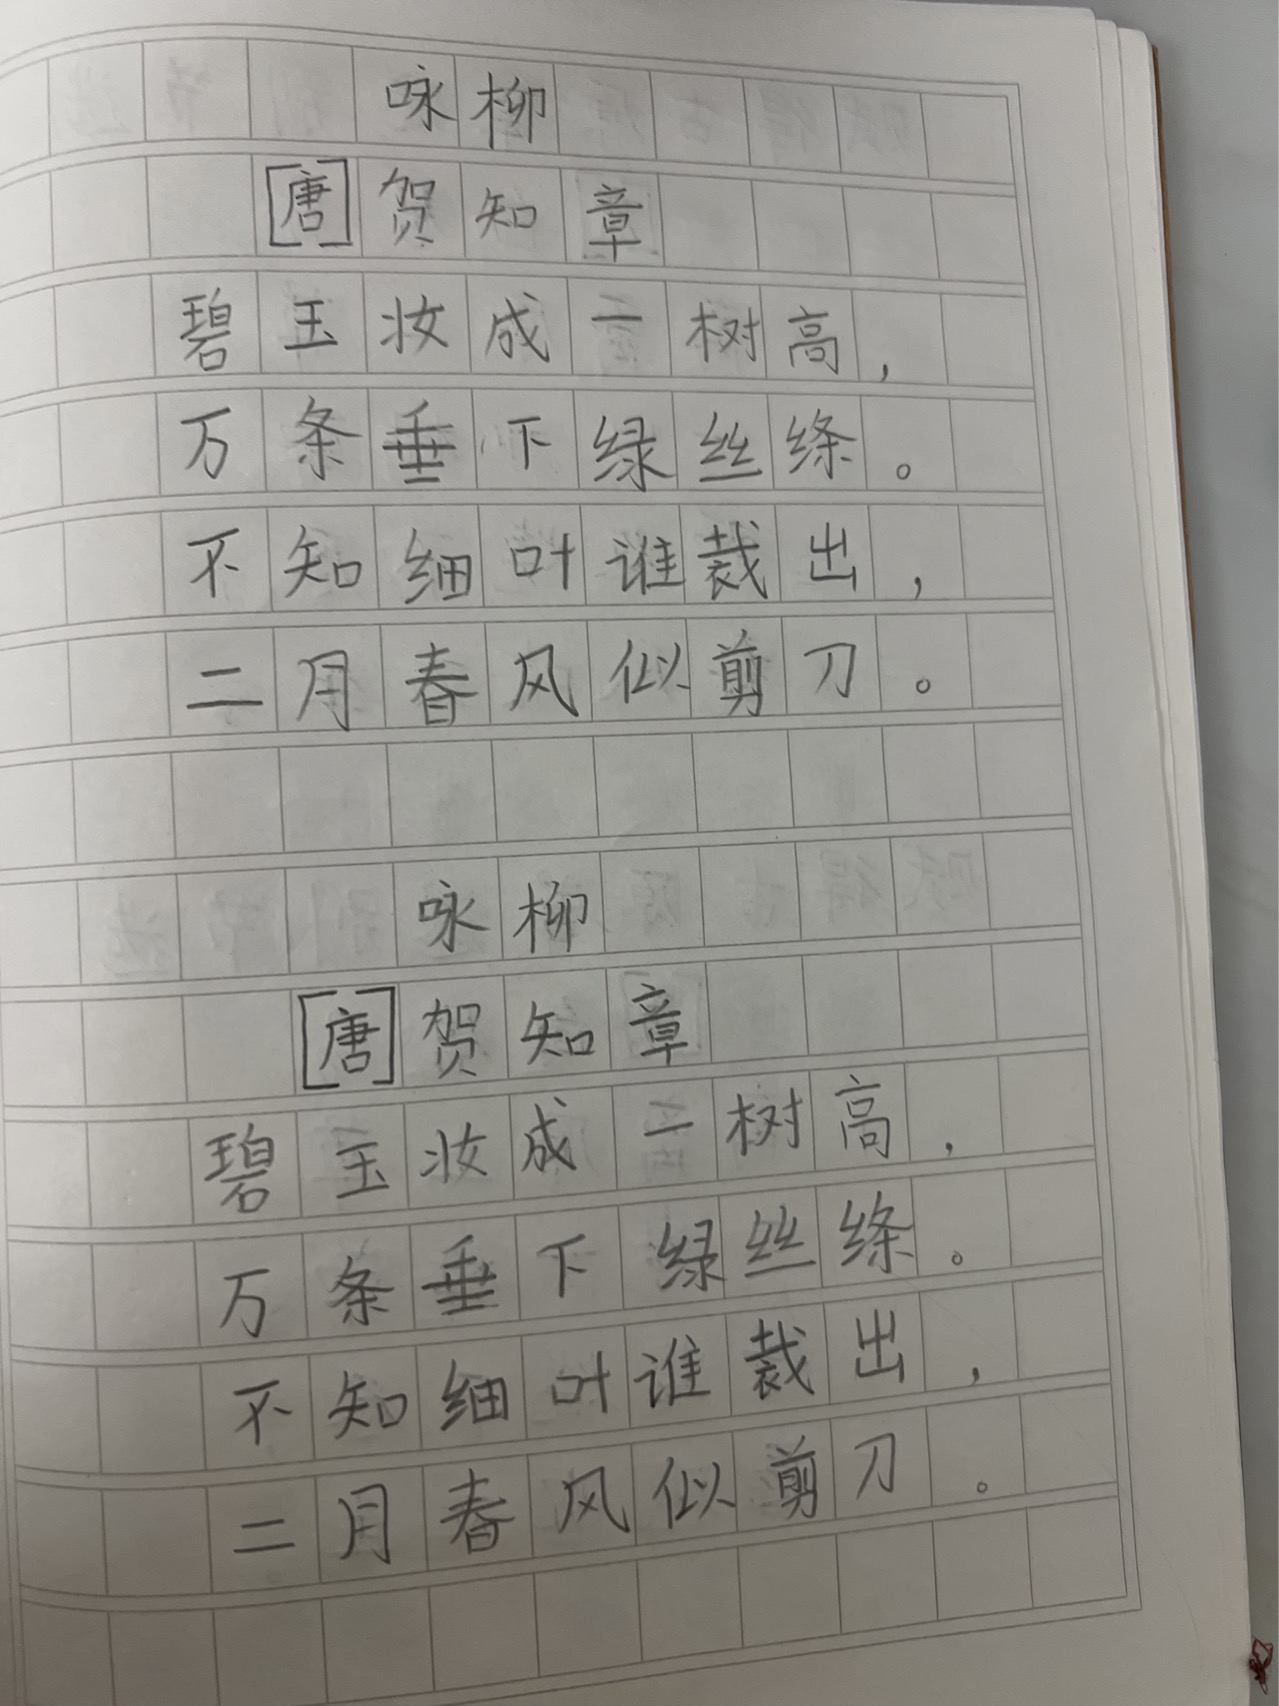 咏柳
[唐]贺知章
碧玉妆成一树高,
万条垂下绿丝绦。
不知细叶谁裁出,
二月春风似剪刀。
咏柳
[唐]贺知章
碧玉妆成一树高,
万条垂下绿丝绦。
不知细叶谁裁出,
二月春风似剪刀。